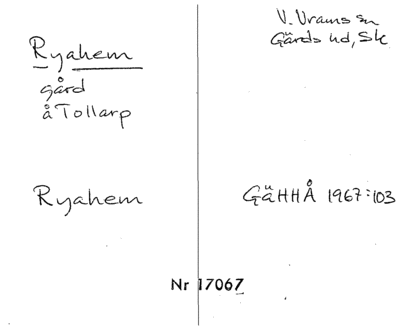 Ryahem
gård
å Tollarp
V. Vrams sn
Gärds hd, Sk
Ryahem
GäHHÅ 1967:103
Nr 17067